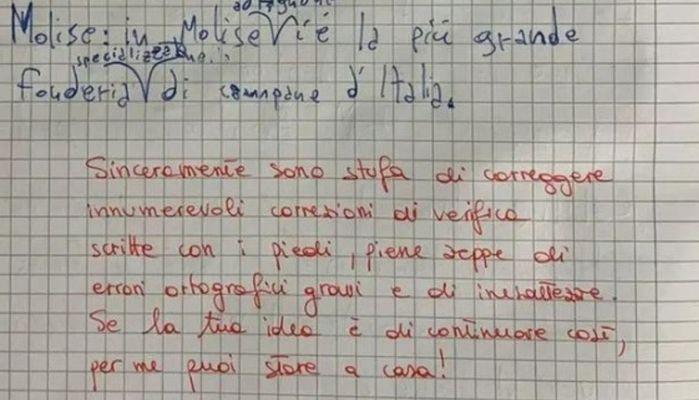 Molise: in Molise c'è la più grande
specializzata
fonderia di campane d'Italia.
Sinceramente sono stufa di correggere
innumerevoli correzioni di verifica
scritte con i piedi, piene zeppe di
errori ortografici gravi e di inesattezze.
Se la tua idea è di continuare così,
per me puoi stare a casa!